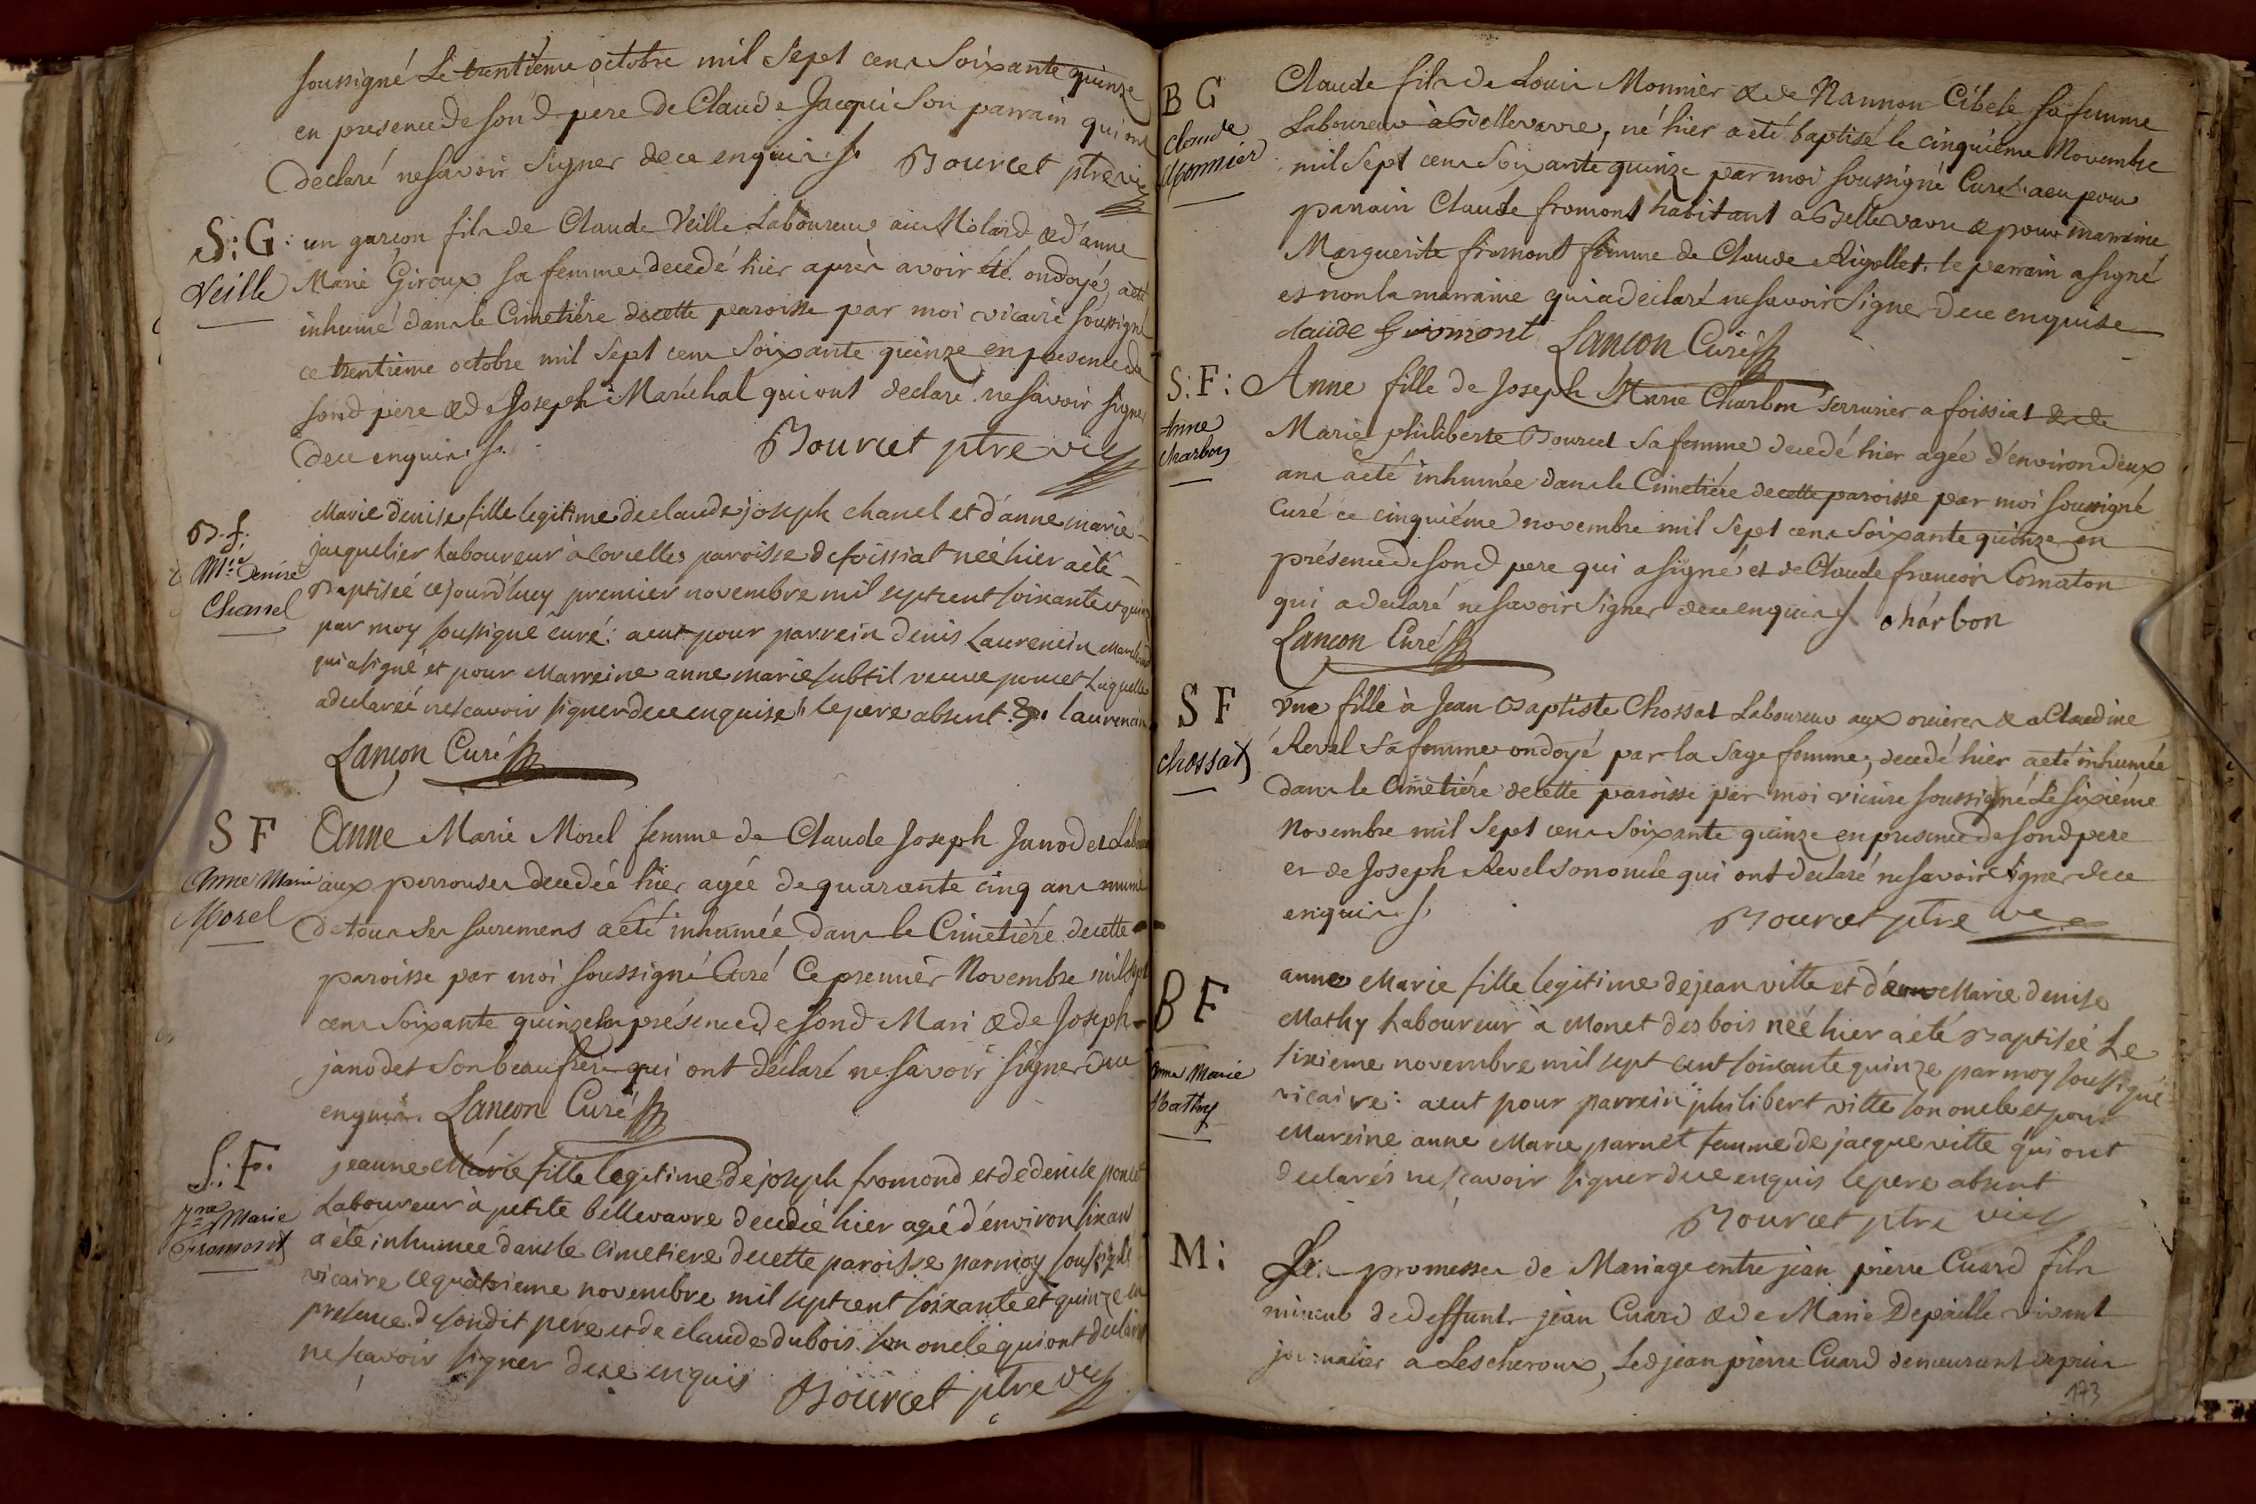 soussigné Le trentieme octobre mil Sept cens Soixante quinze
en presence de sond. pere De Claude Jacqui Son parrain qui ont
declaré ne savoir signer de ce enquis ./. Bourcet ptre vic
S: G:
Veille
un garcon fils de Claude Veille Laboureur au Molard & d'anne
Marie Giroux sa femme decedé hier après avoir été ondoyé, a été
inhumé dans le Cimetière de cette paroisse par moi vicaire soussigné
ce trentieme octobre mil sept cens Soixante quinze en presence de
sond pere & de Joseph Maréchal qui ont declaré ne savoir signer
de ce enquis ./.
Bourcet ptre vic
B. f.
Mie Denise
Chanel
Marie denise fille legitime de claude joseph chanel et d'anne marie
jacquelier Laboureur à Corcelles paroisse de foissiat néé hier a été
Baptiséé ce jourd'huy premier novembre mil sept cent soixante et quinze
par moy soussigné curé: a eut pour parrein denis Laurencin Marchand
qui a signé et pour Marreine anne marie subtil veuve poncet Laquelle
a declaréé ne scavoir signer de ce enquise le pere absent ./. laurencin
Lançon Curé
S F
Anne Marie
Morel
Anne Marie Morel femme de Claude Joseph Janodet Labour
aux perrouses decedée hier agée de quarante cinq ans munie
de tous ses sacremens a été inhumée dans le Cimetière de cette
paroisse par moi soussigné Curé Ce premier Novembre mil sept
cens Soixante quinze En présence de sond Mari & de Joseph
janodet son beau frere qui ont déclaré ne savoir signer de ce
enquis. Lançon Curé
S. F.
Jne Marie
Fromont
jeanne Marie fille legitime de joseph fromond et de denise poncet
Laboureur à petite bellevavre decedéé hier agéé d'environ six ans
a été inhumeé dans le cimetiere de cette paroisse par moy soussigné
vicaire ce quatrieme novembre mil sept cent soixante et quinze en
presence de sondit pere et de claude dubois son oncle qui ont declaré
ne scavoir signer de ce enquis Bourcet ptre vic
B G
Claude
Monnier
Claude fils de Louis Monnier & de Nannon Cibele sa femme
Laboureur à Bellevavre, né hier a été baptisé le cinquième Novembre
mil Sept cens Soixante quinze par moi soussigné Curé: a eu pour
parrain Claude fromont habitant a Bellevavre & pour marraine
Marguerite fromont femme de Claude Rigollet. le parrain a signé
et non la marraine qui a declaré ne savoir signer De ce enquise
claude fromont Lançon Curé
S: F:
Anne
Charbon
Anne fille de Joseph Marie Charbon serrurier a foissiat & de
Marie philiberte Bourcet sa femme decedé hier agéé d'environ deux
ans a été inhumée dans le Cimetière de cette paroisse par moi soussigné
Curé ce cinquiéme novembre mil Sept cens Soixante quinze en
présence de sond pere qui a signé et de Claude francois Cornaton
qui a declaré ne savoir signer de ce enquis ./. charbon
Lançon Curé
S F
Chossat
Une fille à Jean Baptiste Chossat Laboureur aux & a Claudine
Revel sa femme ondoyé par la sage femme, decedé hier a été inhumée
dans le Cimetiére de cette paroisse par moi vicaire soussigné Le sixiéme
Novembre mil Sept cens Soixante quinze en presence de sond pere
et de Joseph Revel son oncle qui ont declaré ne savoir signer de ce
enquis ./.
Bourcet ptre vic
B F
Anne Marie
Mathy
anne Marie fille legitime de jean ville et d'anne Marie denise
Mathy Laboureur à Monet des bois néé hier a été Baptiséé Le
sixieme novembre mil sept cent soixante quinze par moy soussigné
vicaire: a eut pour parrein philibert ville son oncle et pour
Mareine anne Marie parnet femme de jacque ville qui ont
declarés ne scavoir signer de ce enquis le pere absent
Bourcet ptre vic
M:
Les promesses de Mariage entre jean pierre Cuard fils
mineur de deffunts jean Cuard & de Marie Depaille vivant
journalier a Lescheroux, Led jean pierre Cuard demeurant depuis
173